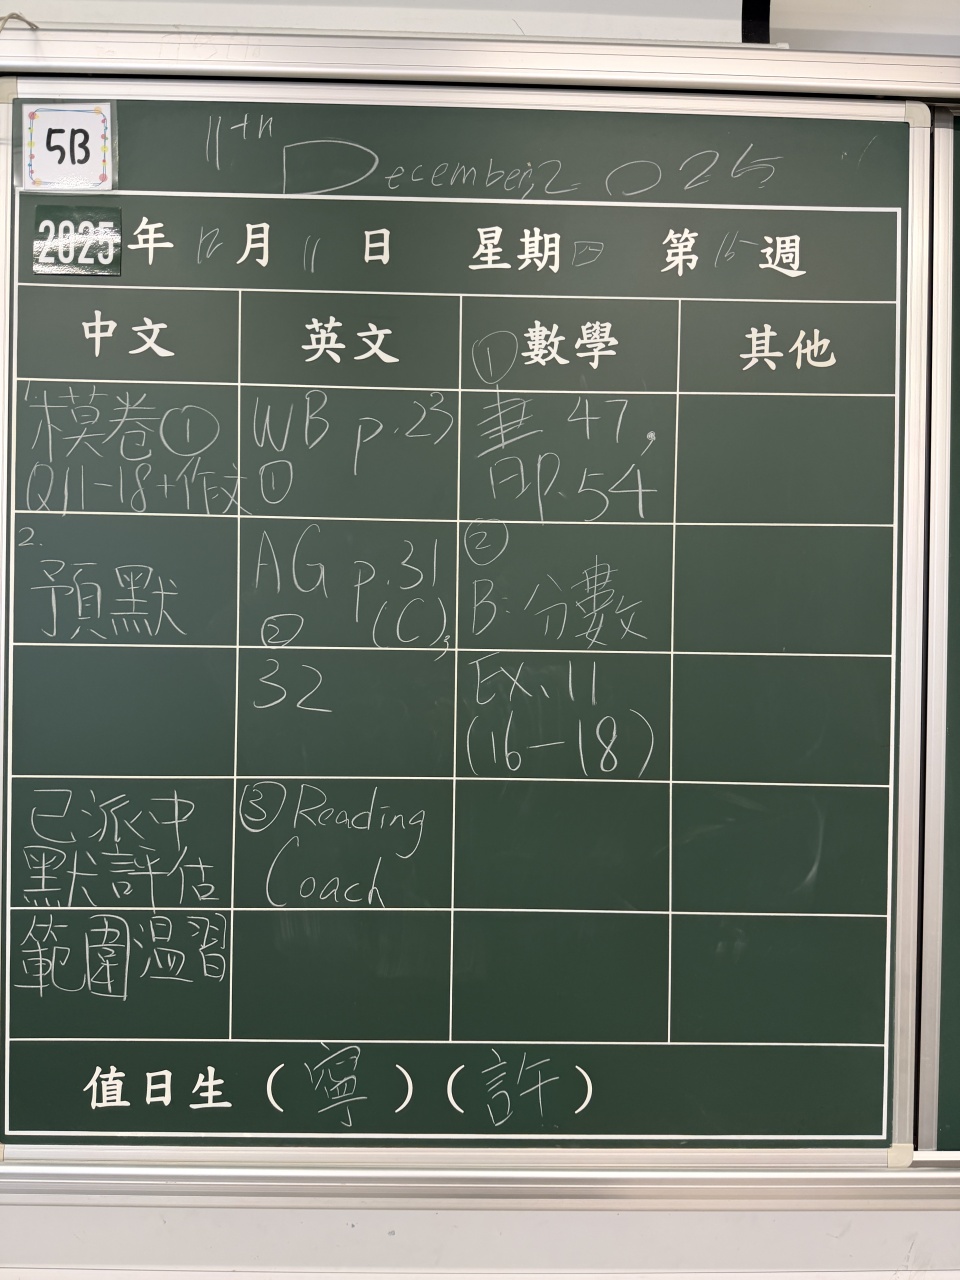 5B
11th December, 2025
2025年12月11日 星期四 第15週
中文 英文 ①數學 其他
1.模卷①
Q11-18+作文
WB p.23
①
書 47,
P.54
2.
預默
AG p.31
② (C),
32
②
B:分數
EX、11
(16-18)
已派中
默評估
範圍溫習
③Reading
Coach
值日生(寧)(許)